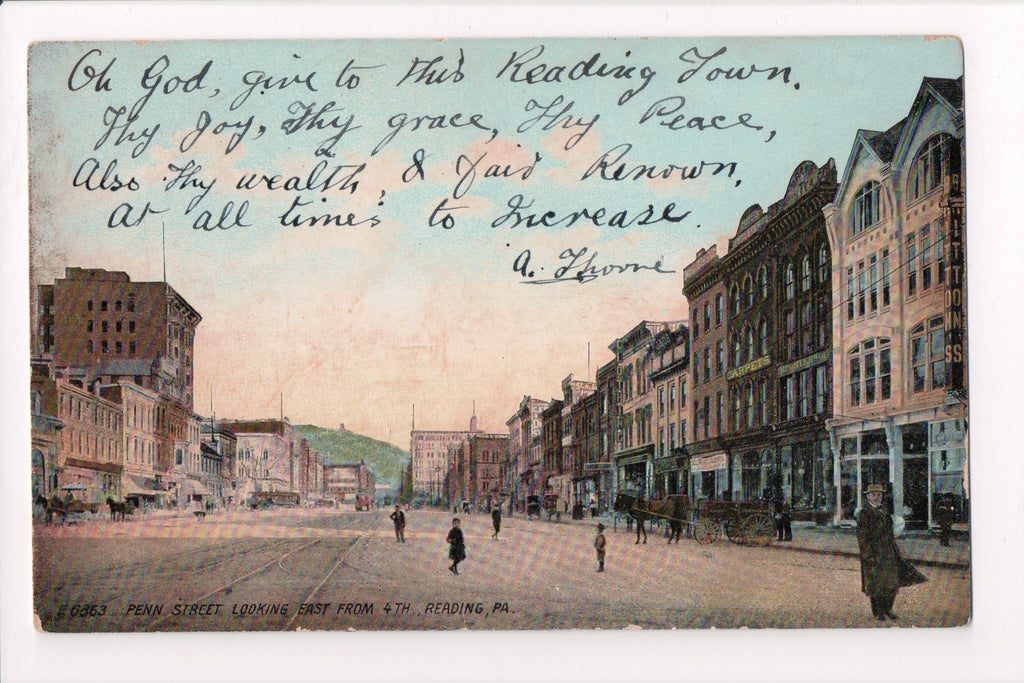 Oh God, give to this Reading Town.
Thy Joy, Thy grace, Thy Peace,
Also Thy wealth, & fair Renown,
At all times to Increase.
A. Thorne
BITTON
SS
E 6863 PENN STREET LOOKING EAST FROM 4TH., READING, PA.